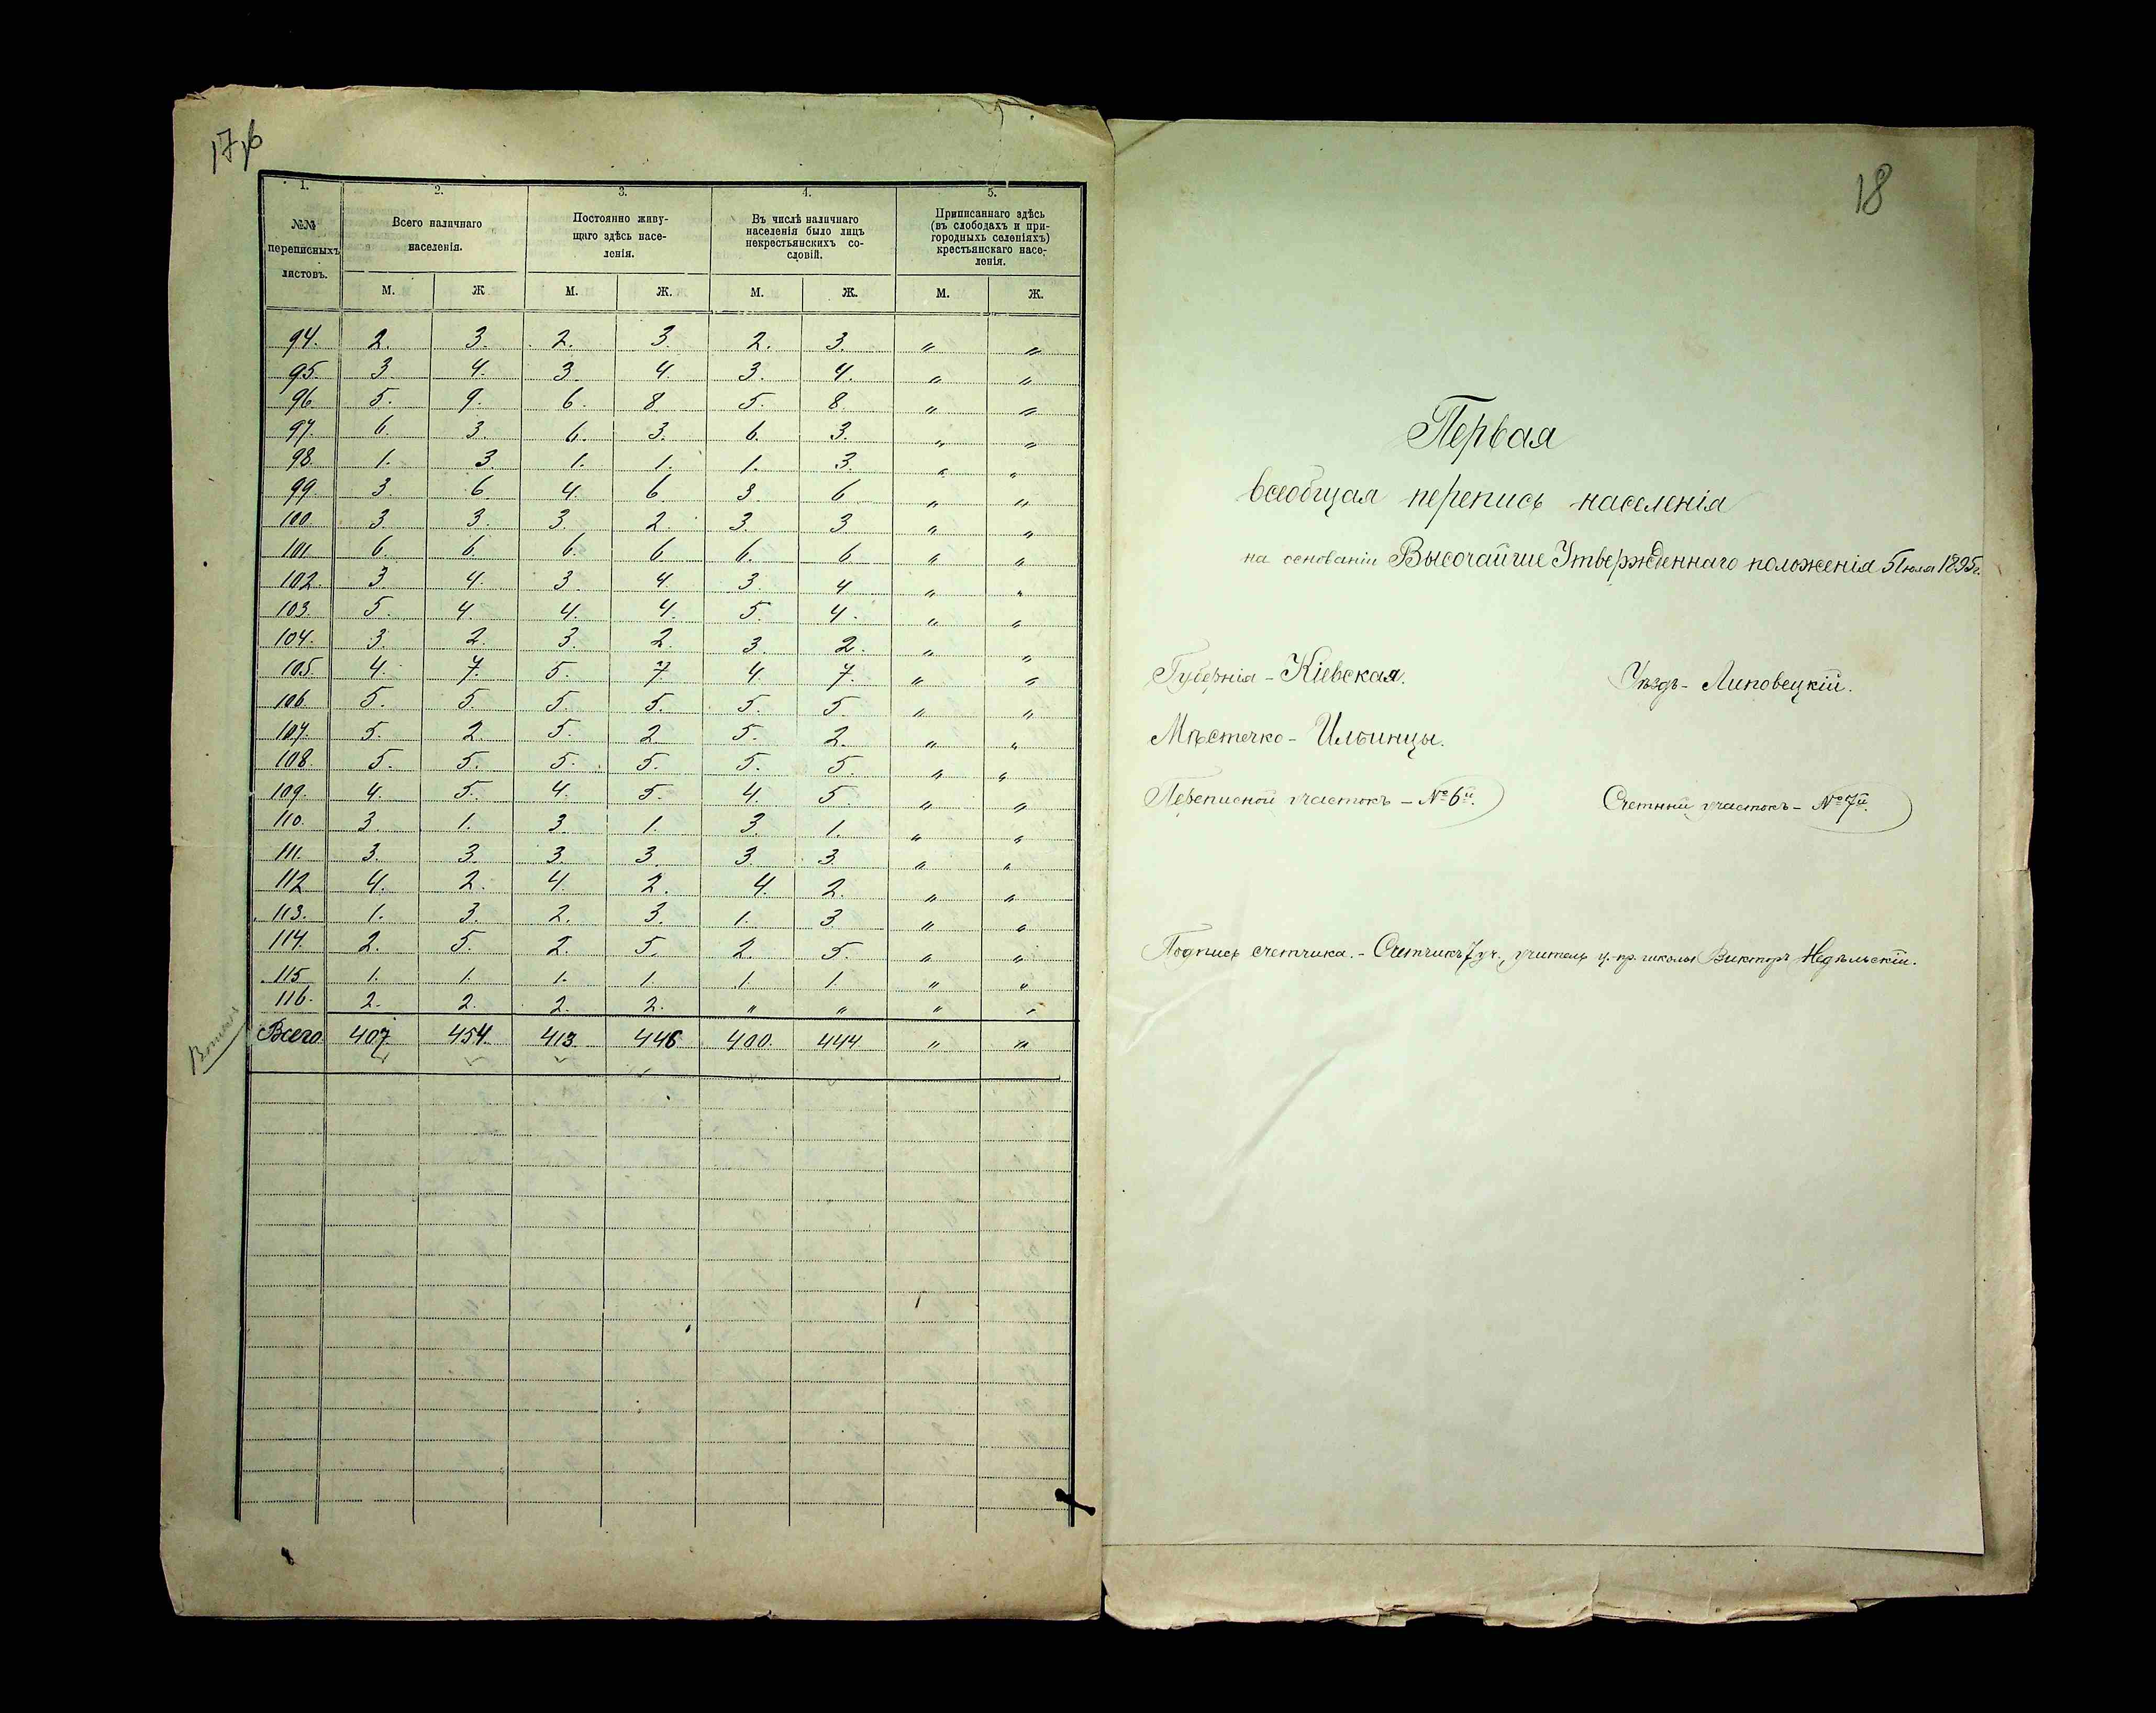 1. 2. 3. 4. 5.
№№ переписныхъ листовъ.
Всего наличнаго населенія.
Постоянно живу-
щаго здѣсь насе-
ленія.
Въ числѣ наличнаго
населенія было лицъ
некрестьянскихъ со-
словій.
Приписаннаго здѣсь
(въ слободахъ и при-
городныхъ селеніяхъ)
крестьянскаго насе-
ленія.
М. Ж М. Ж. М. Ж. М. Ж.
94. 2. 3. 2. 3. 2. 3. „ „
95. 3. 4. 3. 4. 3. 4. „ „
96. 5. 9. 6. 8. 5. 8. „ „
97. 6. 3. 6. 3. 6. 3. „ „
98. 1. 3. 1. 1. 1. 3. „ „
99. 3. 6. 4. 6. 3. 6 „ „
100. 3. 3. 3. 2. 3. 3 „ „
101. 6. 6. 6. 6. 6. 6 „ „
102. 3. 4. 3. 4. 3. 4 „ „
103. 5. 4. 4. 4. 5. 4. „ „
104. 3. 2. 3. 2. 3. 2. „ „
105. 4. 7. 5. 7 4. 7. „ „
106. 5. 5. 5. 5. 5. 5. „ „
107. 5. 2. 5. 2. 5. 2. „ „
108. 5. 5. 5. 5. 5. 5. „ „
109. 4. 5. 4. 5. 4. 5. „ „
110. 3. 1. 3. 1. 3. 1. „ „
111. 3. 3. 3. 3. 3. 3. „ „
112 4. 2. 4. 2. 4. 2. „ „
113. 1. 3. 2. 3. 1. 3 „ „
114. 2. 5. 2. 5. 2. 5. „ „
115 1. 1. 1. 1. 1. 1. „ „
116. 2. 2. 2. 2. „ „ „ „
Всего 407 454. 413. 446. 400. 444 „ „
18
Первая
всеобщая перепись населенія
на основаніи Высочайше Утвержденнаго положенія 5 Іюля 1895г.
Губернія - Кіевская. Уѣздъ - Липовецкій.
Мѣстечко - Ильинцы.
Переписной участокъ - № 6й. Счетный участокъ - № 7й.
Подпись счетчика. - Счетчикъ 7 уч., учитель ц.-пр. школы Викторъ Недѣльскій.